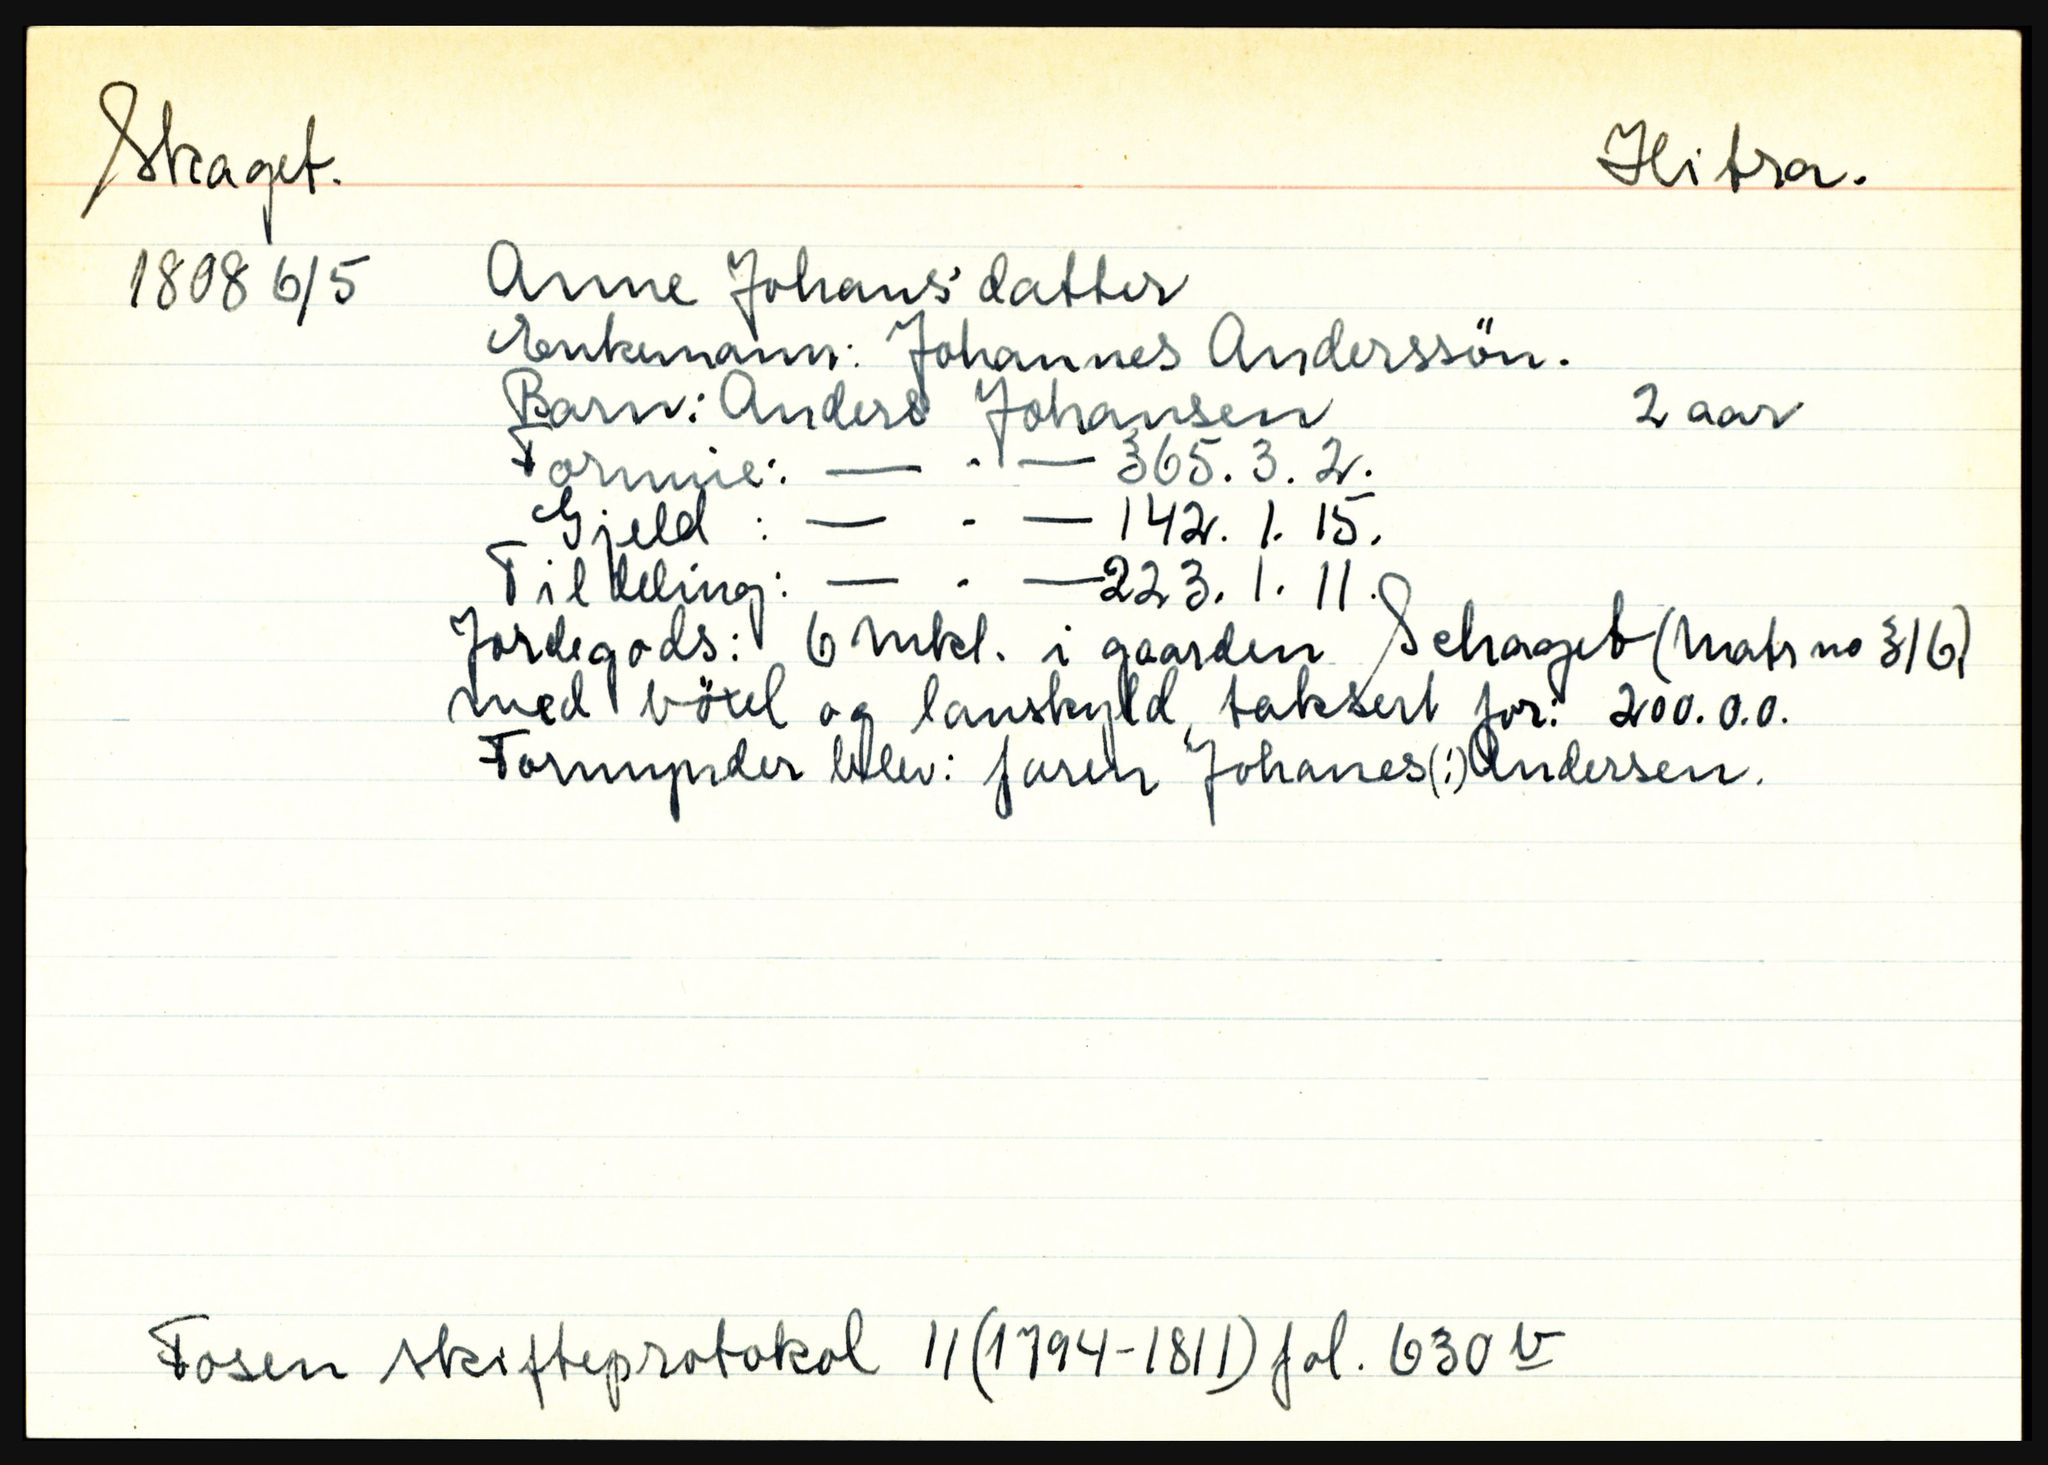 Skaget. Hitra.
1808 6/5 Anne Johansdatter
Enkemann: Johannes Anderssön.
Barn: Anders Johansen 2 aar
Formue: — - — 365. 3. 2.
Gjeld : — - — 142. 1. 15.
Til deling: — - — 223. 1. 11.
Jordegods: 6 mkl. i gaarden Schaget (Matr no 316)
med böxel og lanskyld, taksert for: 200.0.0.
Formynder blev: faren Johanes(:) Andersen.
Fosen skifteprotokol 11 (1794-1811) fol. 630 v